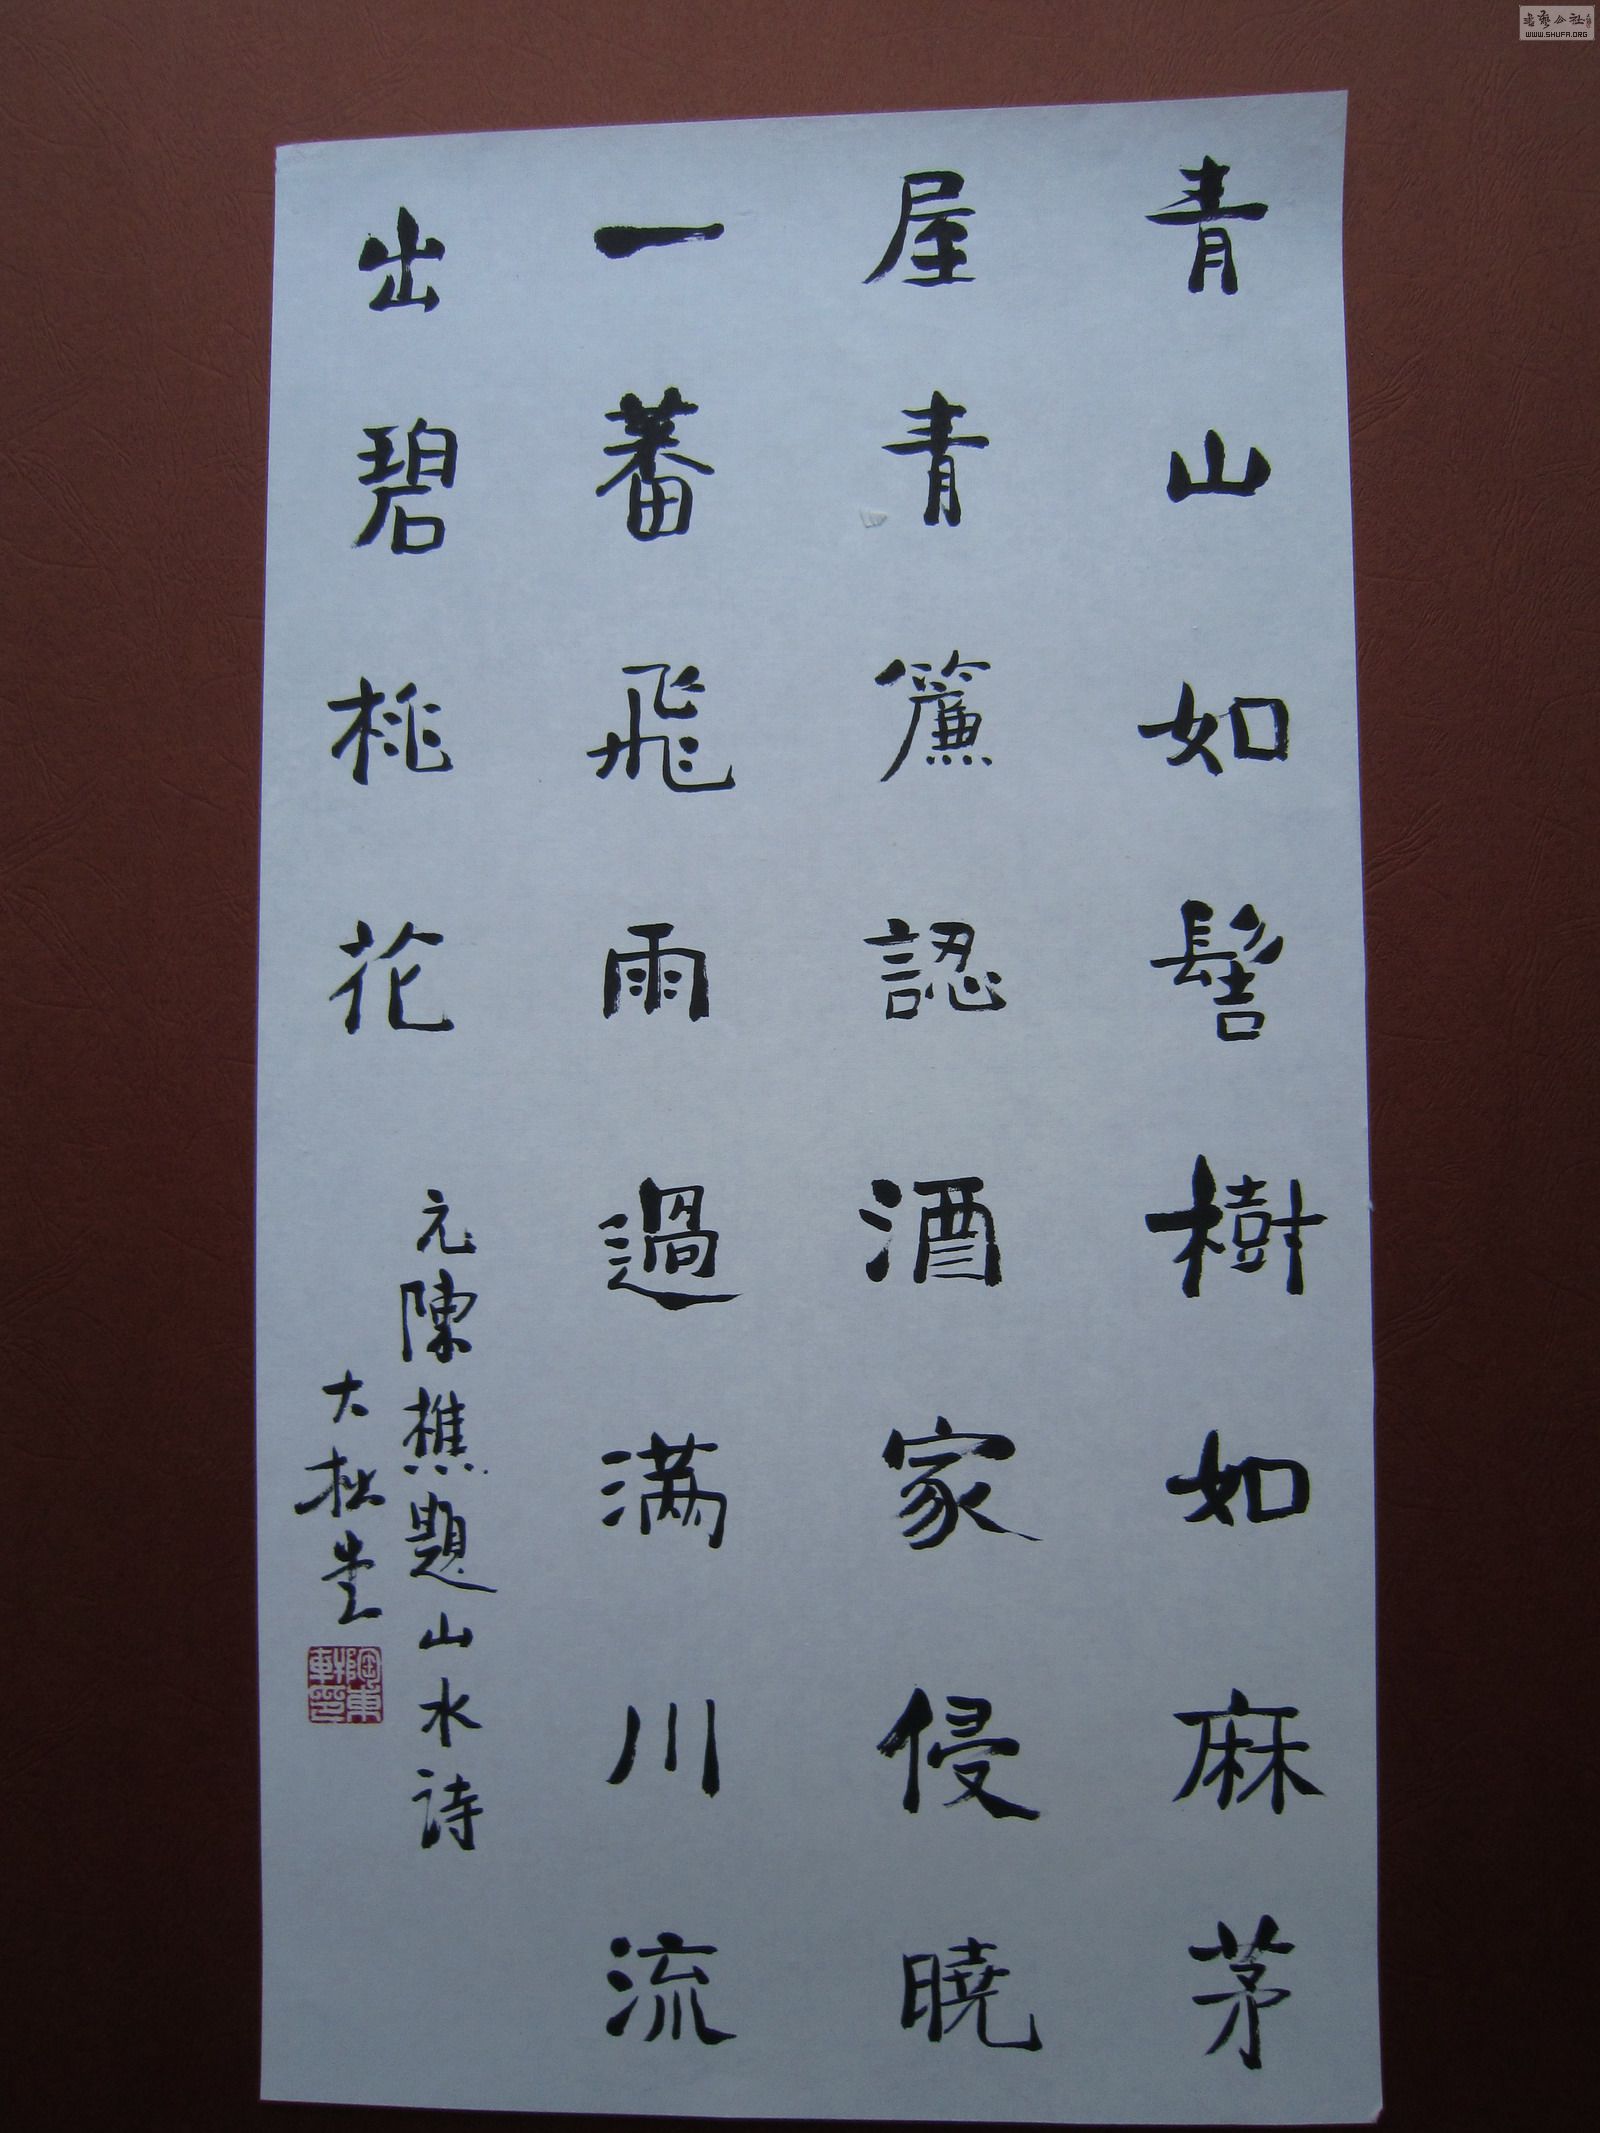 青山如髻樹如麻茅
屋青簾認酒家侵曉
一蕃飛雨過满川流
出碧桃花
元陳樵題山水诗
大松堂
書藝公社
WWW.SHUFA.ORG